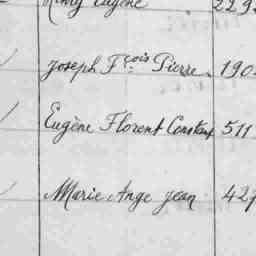 Rémy Eugène 229
Joseph Fçois Pierre 190
Eugène Florent Constant 511
Marie Ange Jean 427